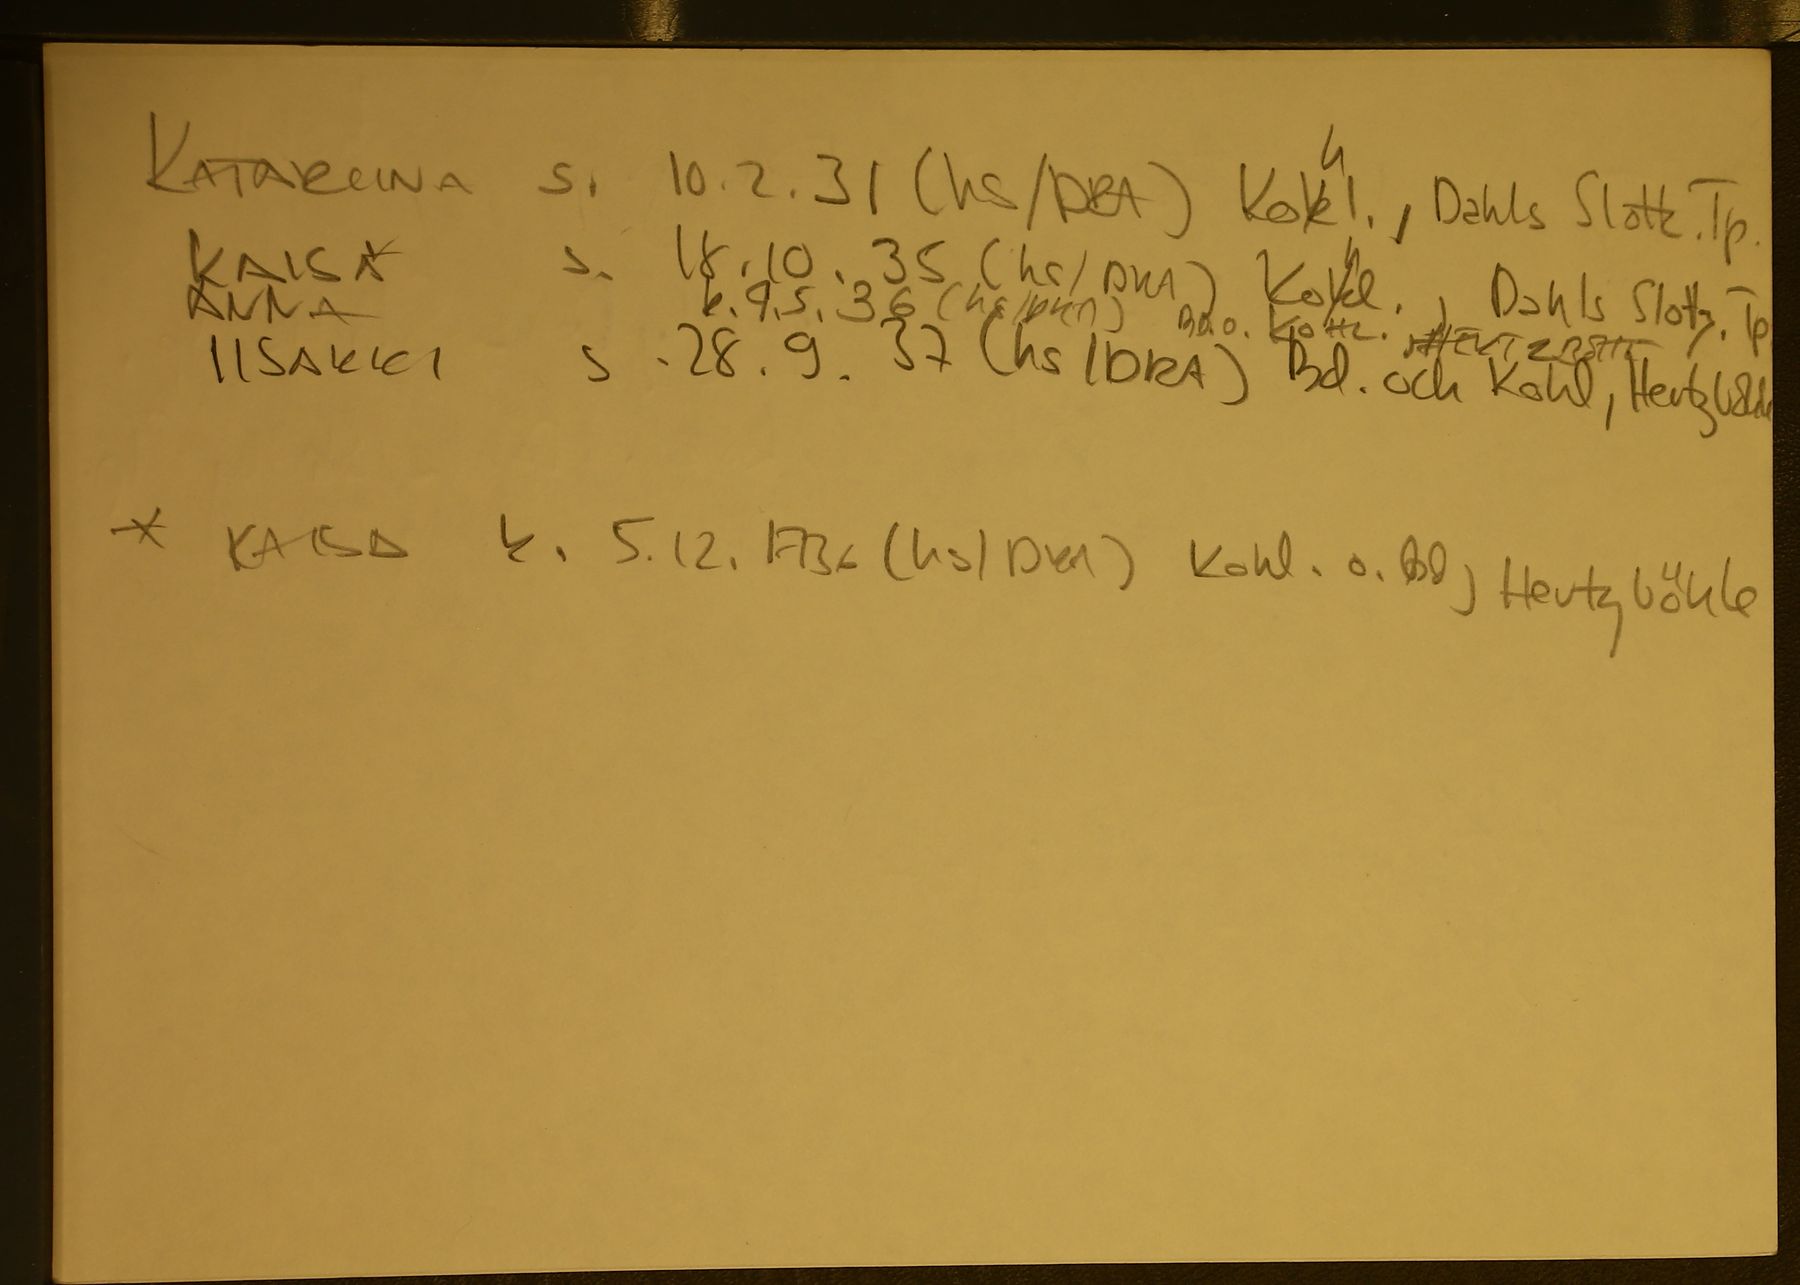 KATARIINA s. 10.2.31 (hs/DRA) Kohl., Dahls Slottz. Tp.
KAISA* s. 18.10.35 (hs/DRA) Kohl., Dahls Slottz. Tp
ANNA k. 9.5.36 (hs/DRA) Bd. o. Kohl.
IISAKKI s. 28.9.37 (hs/DRA) Bd. och Kohl, Hertzböhle
* KAISA k. 5.12.1736 (hs/DRA) Kohl. o. Bd, Hertzböhle